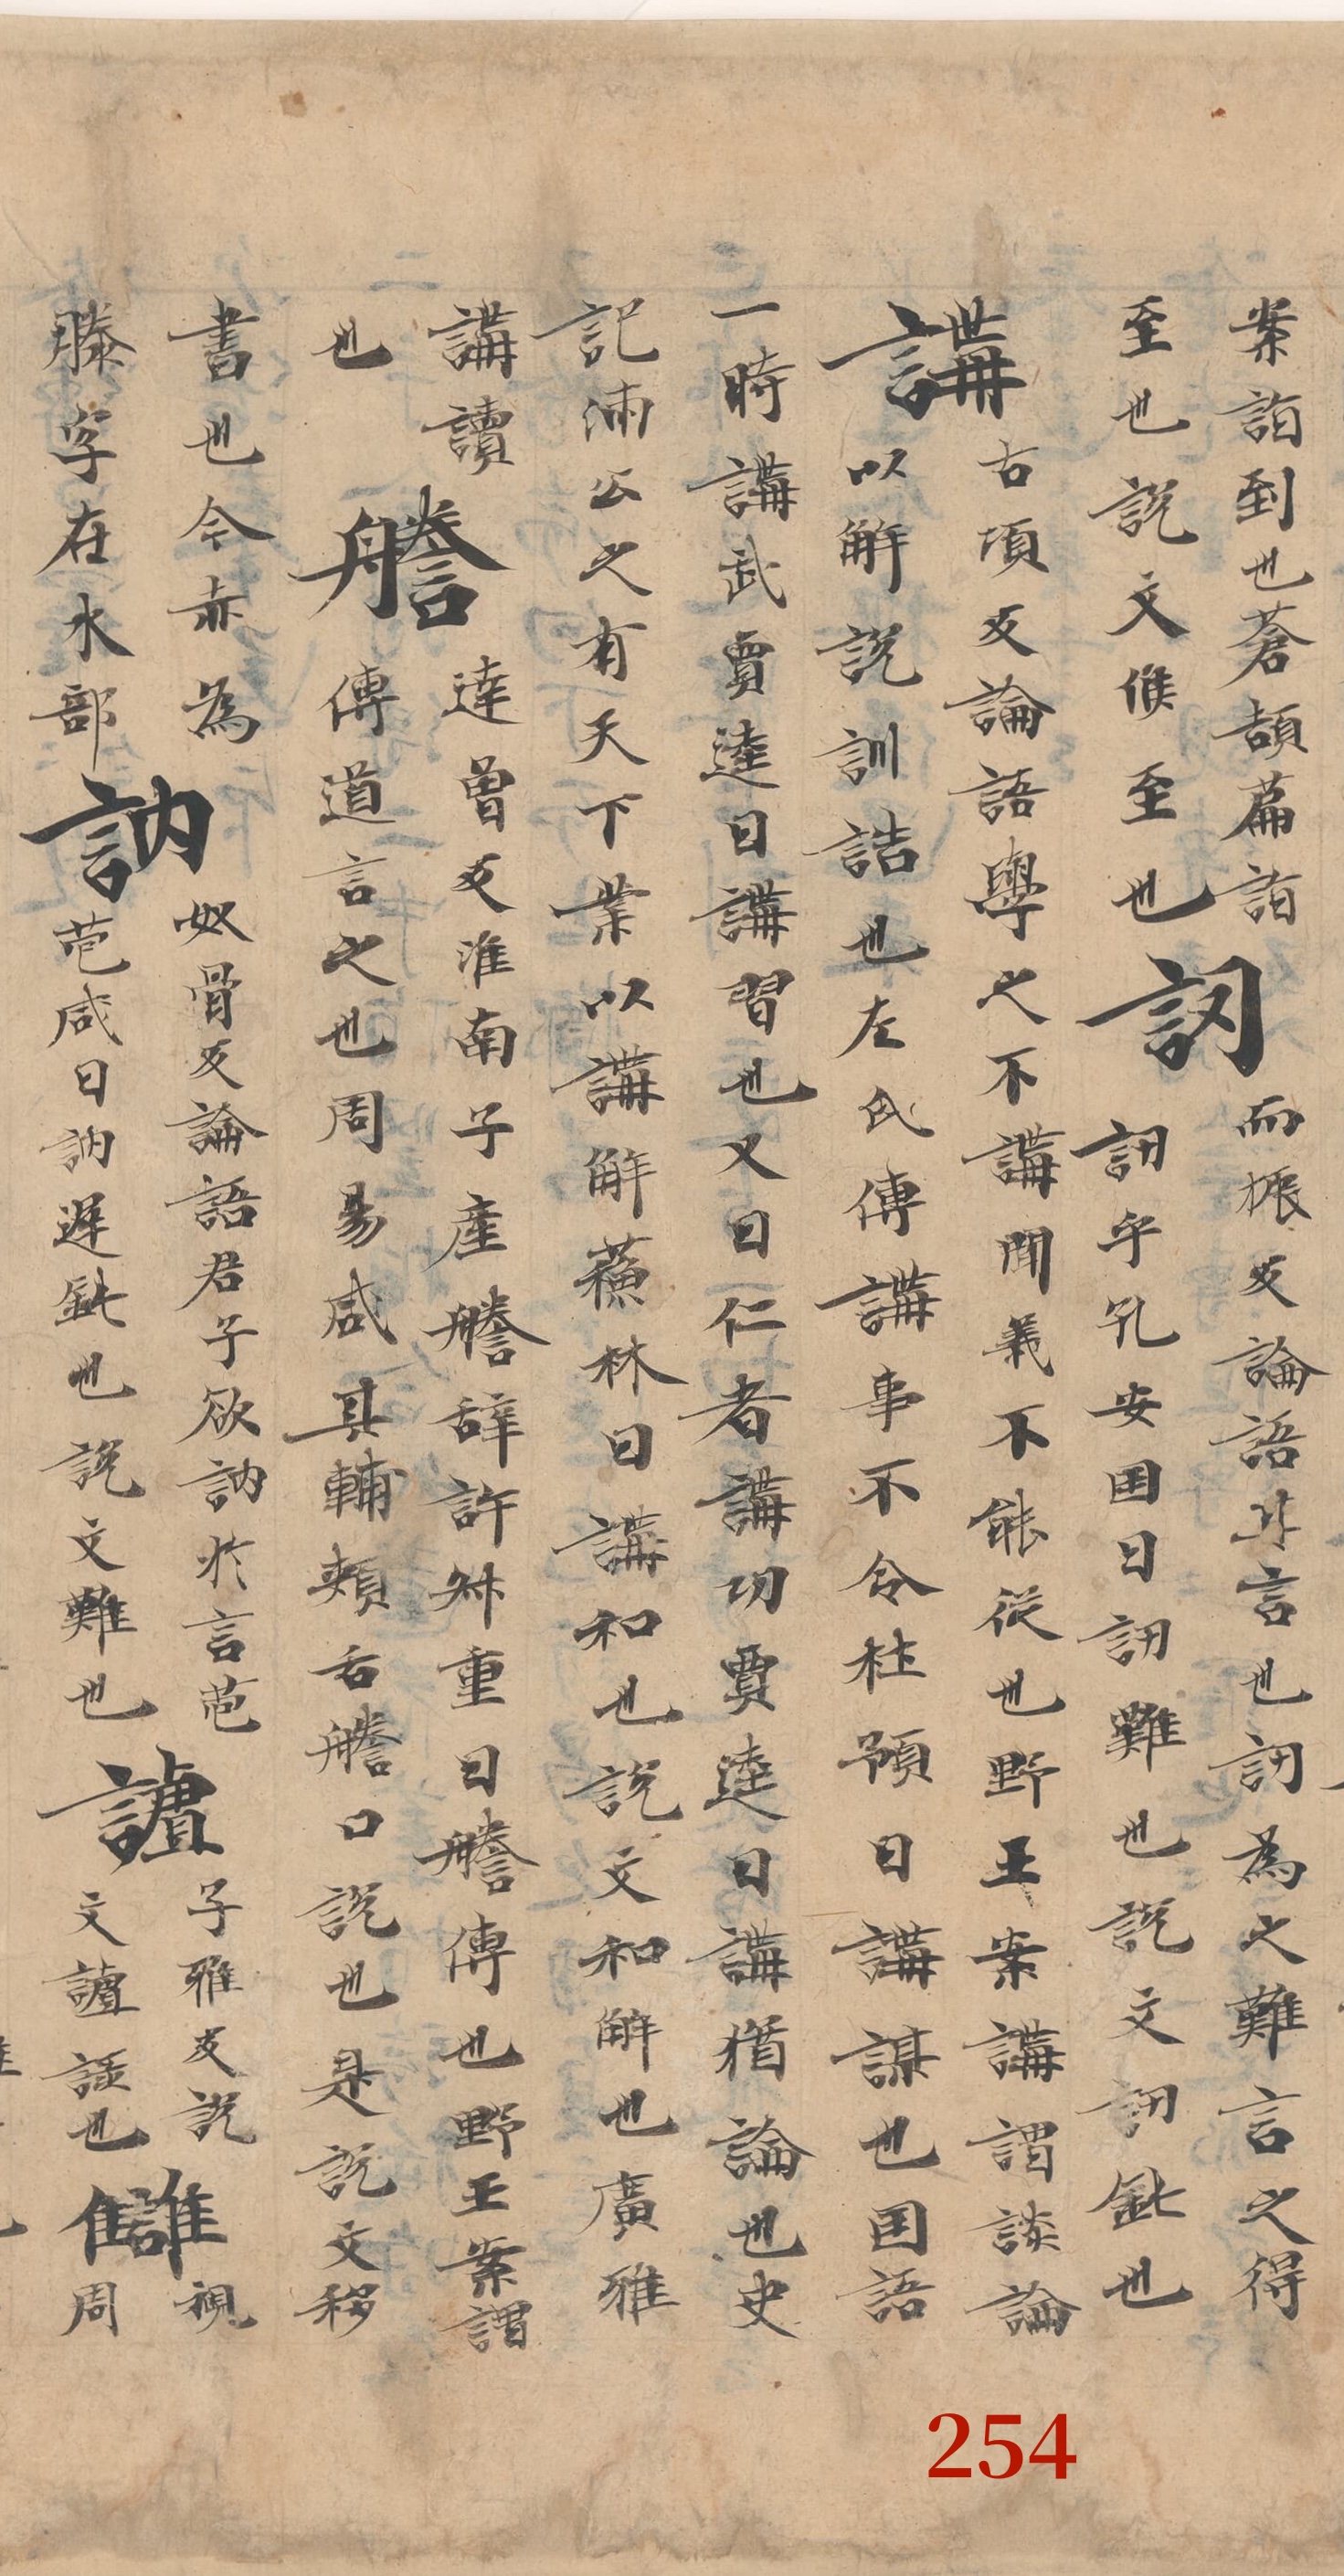 案詣到也蒼頡篇詣
至也說文候至也
訒
而振反論語其言也訒為之難言之得
訒乎孔安国曰訒難也說文訒鈍也
講
古項反論語學之不講聞義不能從也野王案講謂談論
以解說訓詁也左氏傳講事不令杜預曰講謀也国語
一時講武賈逵曰講習也又曰仁者講功賈逵曰講猶論也史
記沛公之有天下業以講解蘇林曰講和也說文和解也廣雅
講讀
也
謄
達曾反淮南子產謄辞許叔重曰謄傳也野王案謂
傳道言之也周易咸其輔頰舌謄口說也是說文移
書也今亦為
滕字在水部
訥
奴骨反論語君子欲訥於言苞
苞咸曰訥遅鈍也說文難也
謯
子雅反說
文謯也
讎
視
周
254